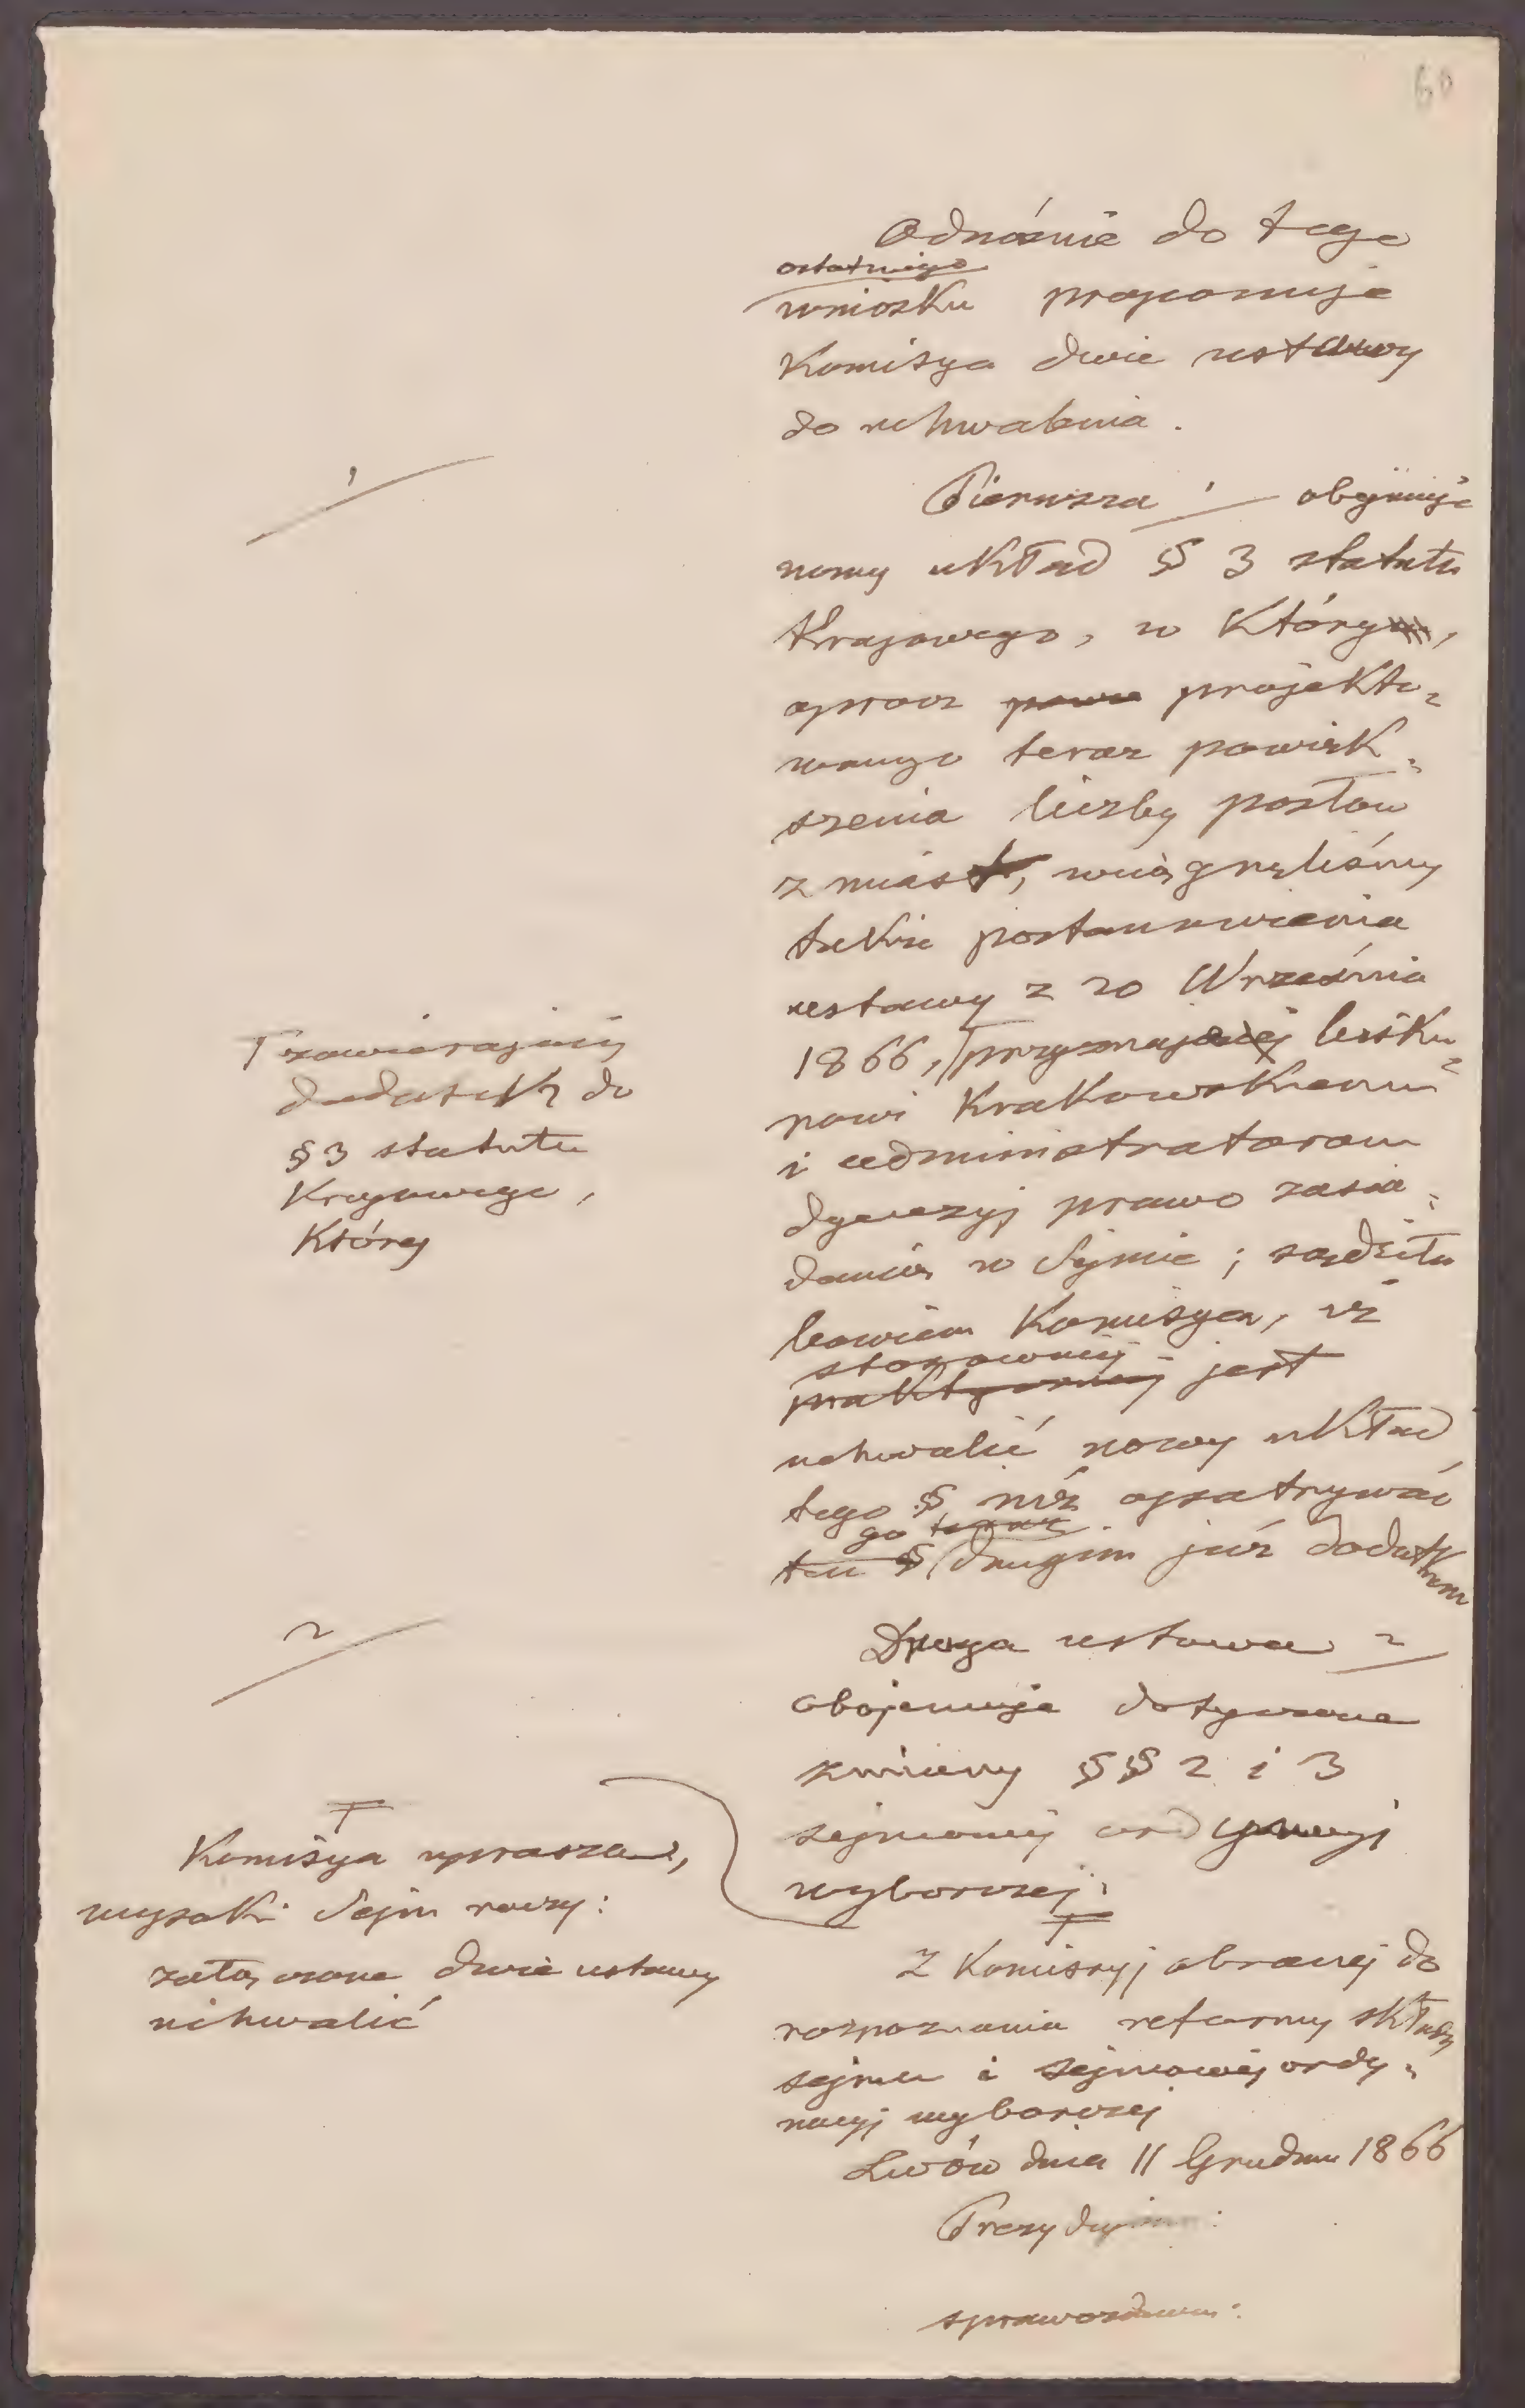 60
Odnośnie do tego
ostatniego
wniosku proponuje
Komisya dwie ustawy
do uchwalenia.
1
Pierwsza 1 obejmuje
nowy układ § 3 statutu
Krajowego, w który,
oprocz projekto-
wanego teraz powięk-
szenia liczby posłow
z miast, wciągnęliśmy
także postanowienia
ustawy z 20 Września
1866, przyznającej bisku-
powi Krakowskiemu
i administratorom
dyecezyj prawo zasia-
dania w Sejmie; sądziła
bowiem Komisya, iż
stosowniej
praktyczniej jest
uchwalić nowy układ
tego § niż opatrywać
go teraz
ten § drugim już dodatkiem
zawierającej
dodatek do
§ 3 statutu
Krajowego,
której
2
Druga ustawa 2
obejmuje dotyczone
zmiany §§ 2 i 3
sejmowej ordynacyi
wyborczej.
Komisya uprasza,
wysoki Sejm raczy:
załączone dwie ustawy
uchwalić
Z Komisyj obranej do
rozpoznania reformy składu
sejmu i sejmowej ordy-
nacyj wyborczej
Lwów dnia 11 Grudnia 1866
Prezydujący:
sprawozdawca: